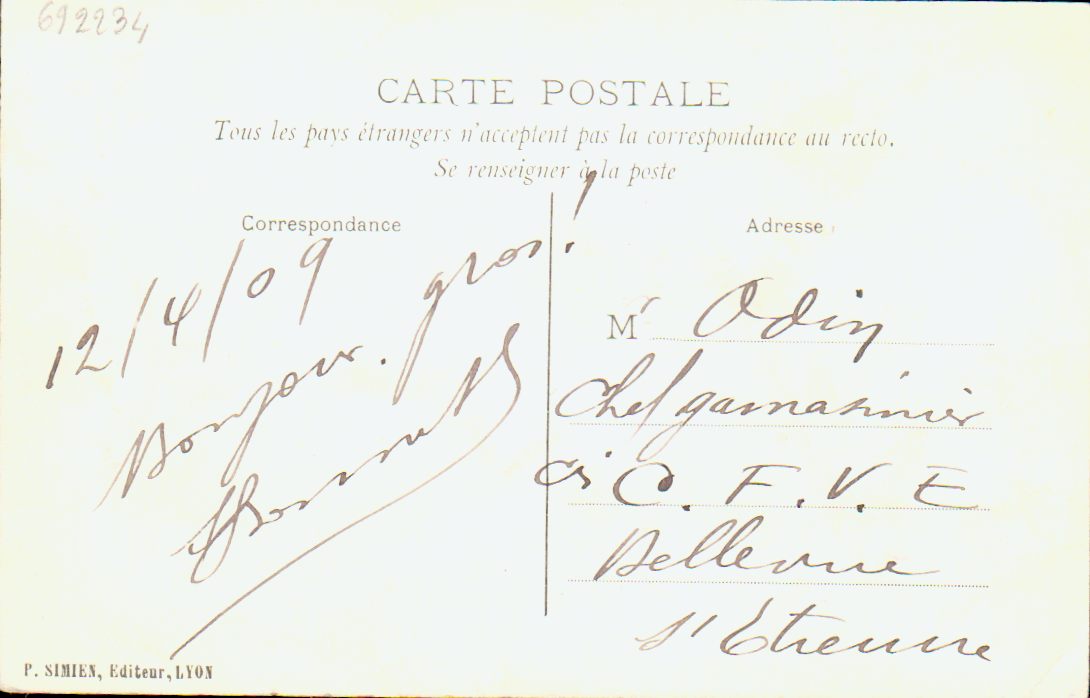 692234
CARTE POSTALE
Tous les pays étrangers n'acceptent pas la correspondance au recto.
Se renseigner à la poste
Correspondance
12/4/09
Bonjour. gros!
Adresse
Mr Odin
Chef gamasinier
C. F. V. E
Bellevue
St Etienne
P. SIMIEN, Editeur, LYON